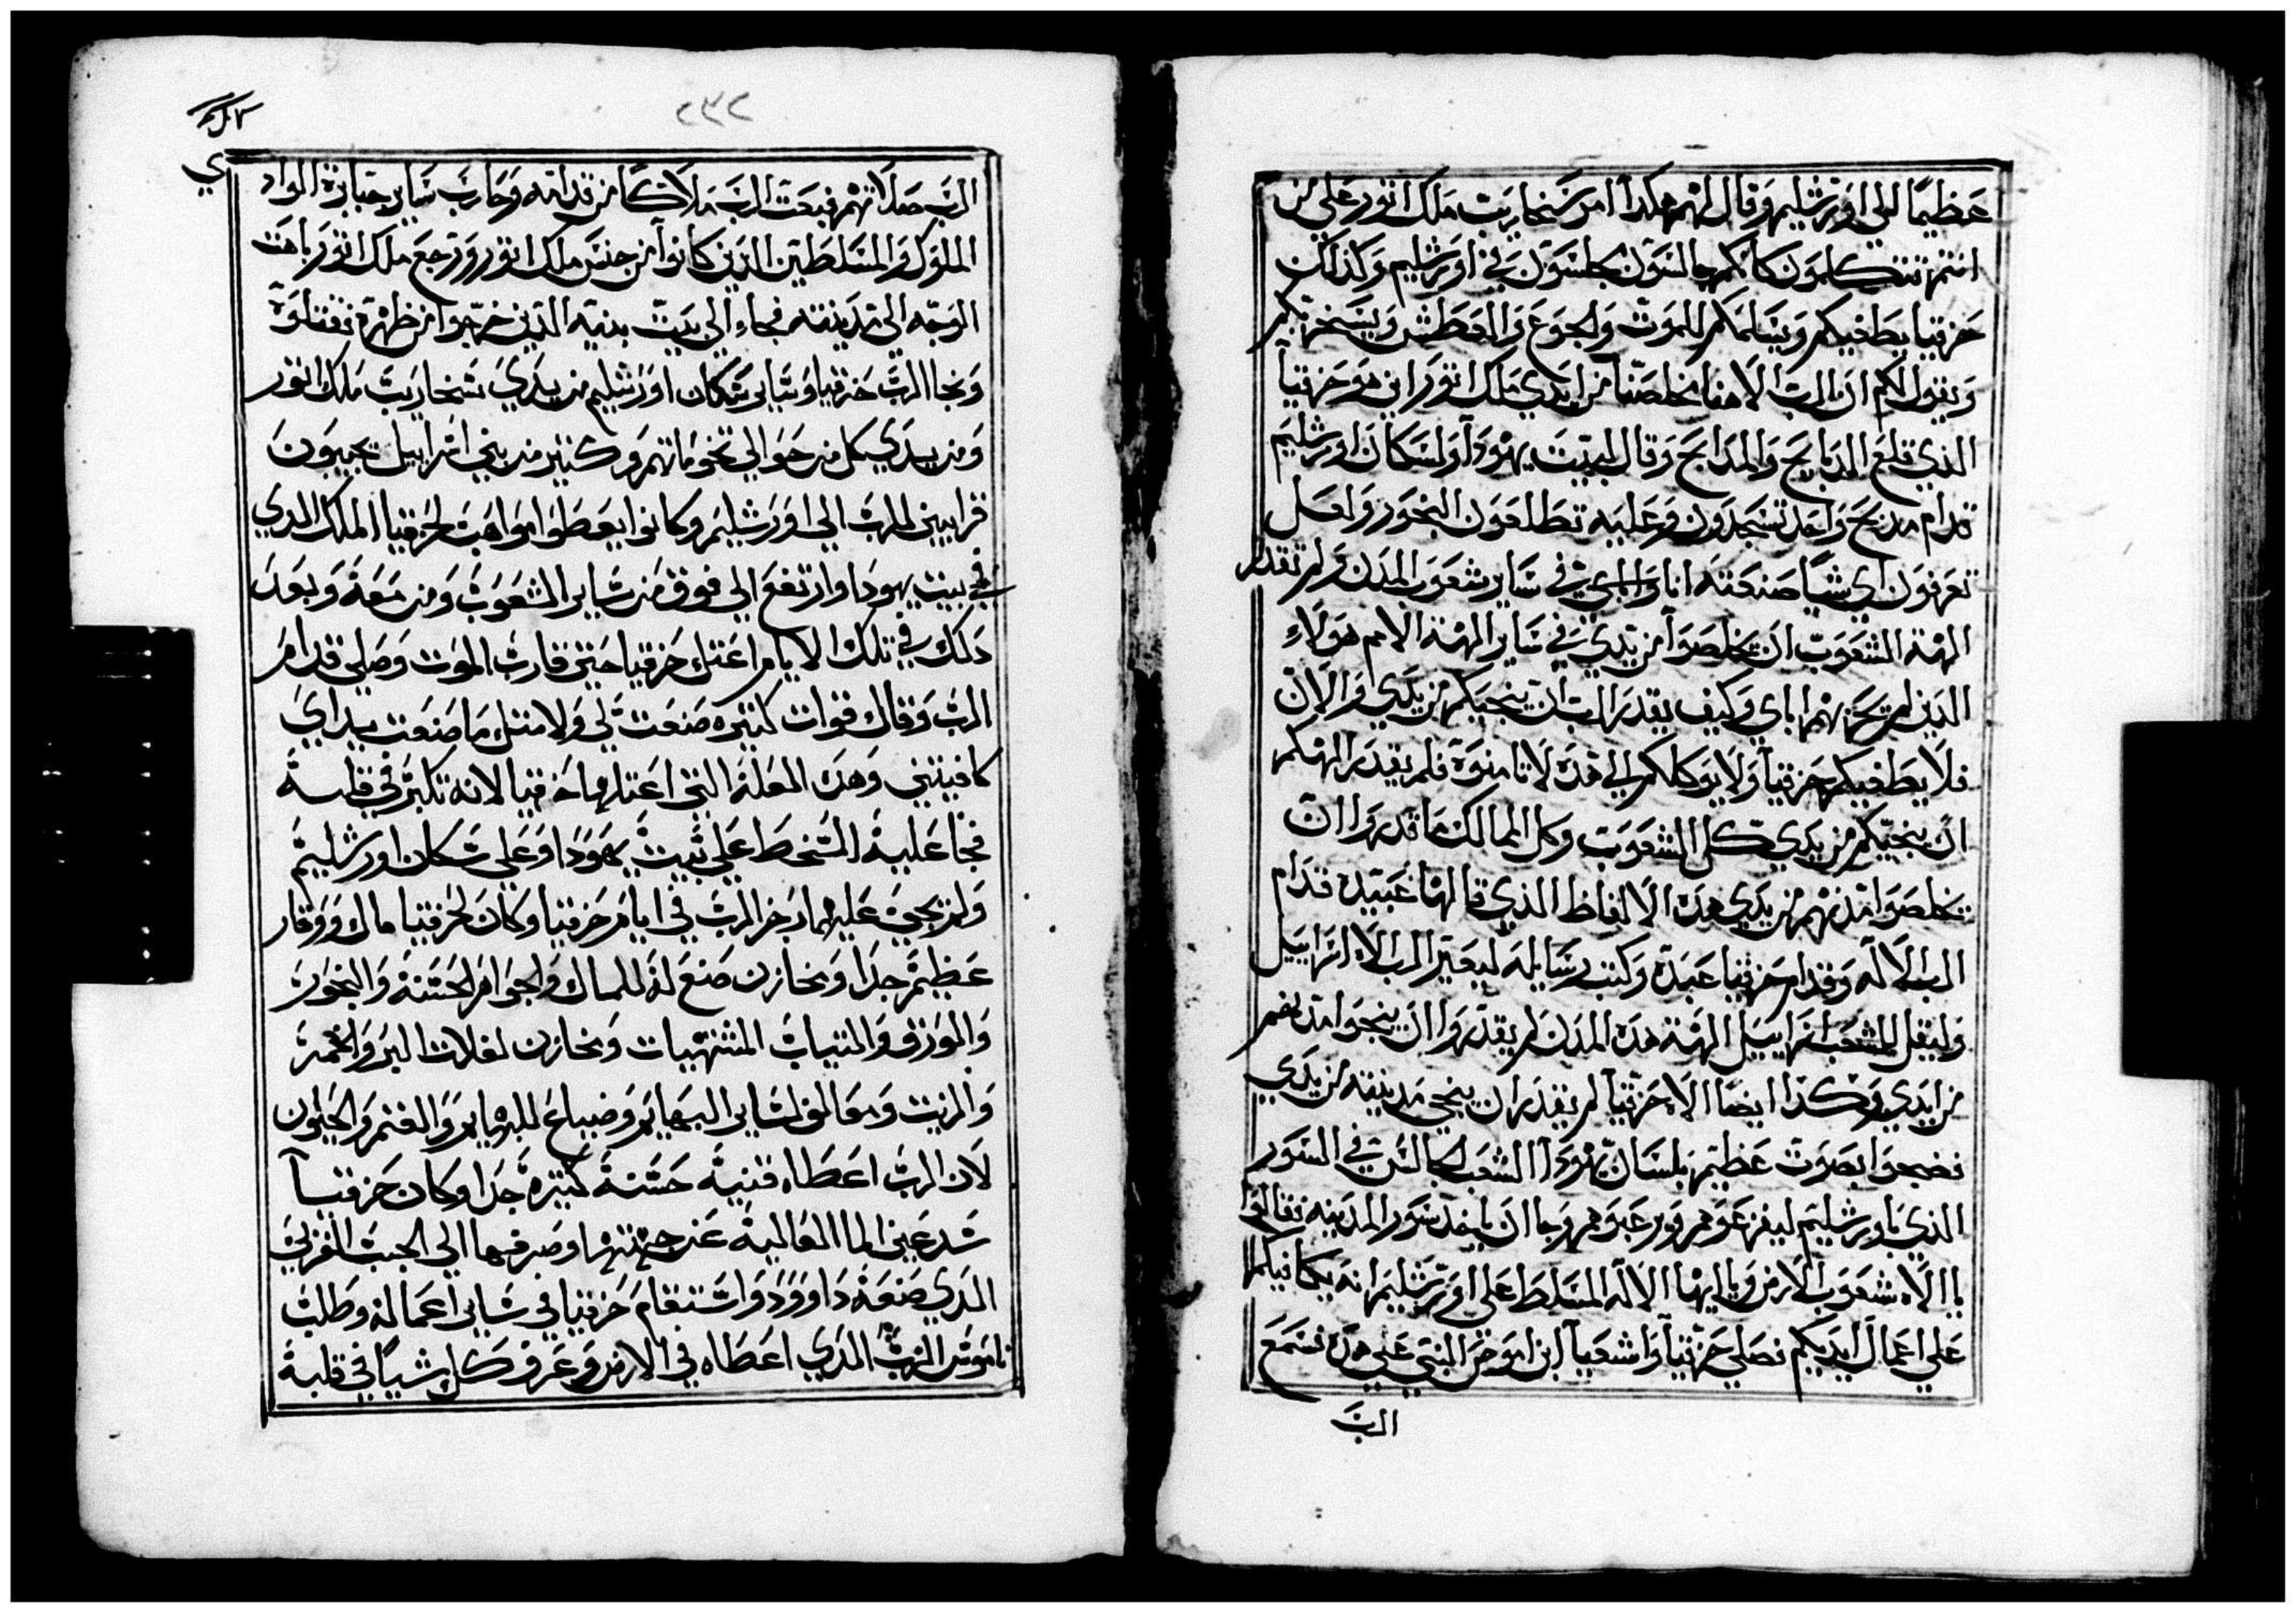 عظيمًا الي اورشليم وقال لهم هكدا امر سنحاريب ملك اتور علي من
انتم تتكلمون كانكم جالسون بجلسون في اورشليم وكذلك
حزقيا يطغيكم ويسلمكم للموت والجوع والعطش ويسخر بكم
ويقول لكم ان الرب الاهنا يخلصنا من ايدي ملك اتور اين هو حزقيا
الذي قلع المدبايح والمدابح وقال لبيت يهودا ولسكان اورشليم
قدام مدبح واحد تسجدون وعليه تطلعون البخور ولعل
تعرفون اي شيًا صنعته انا واباي في ساير شعوب المدن ولم تقدر
الهة الشعوب ان يخلصوا من يدي في ساير الهة الامم هولاء
الذين اخربهم اباي وكيف يقدر الرب ان ينجيكم من يدي والان
فلا يطغيكم حزقيا ولا يوكلكم الي هده لا تامنوه فلم يقدر الهكم
ان ينجيكم من يدي كل الشعوب وكل الممالك ما قدروا ان
يخلصوا مدنهم من يدي هده الالفاظ الذي قالها عبيده قدام
الرب الاله وقدام حزقيا عبده وكتب رسايله ليعير الرب الاه اسراييل
وليقل للشعب اسراييل الهة هده المدن لم يقدروا ان ينجوا مدنهم
من ايدي وهكدا ايضا الاه حزقيا لم يقدر ان ينجي مدينته من يدي
فضجوا بصوت عظيم بلسان يهودا الشعب الجالس في السور
الذي باورشليم ليفزعوهم ويرعبوهم وجا ان ياخد سور المدينه فقالوا
يا الاه شعوب الارض ويا ايها الاله المسلط علي اورشليم انه يكافيكم
علي اعمال ايديكم فصلي حزقيا واشعيا ابن اموص النبي عن هده فسمع
الرب
٢٣٢
الرب صلاتهم فبعت الرب ملاكًا من قدامه وحارب ساير جبابرة المواد
ي
الملوك والمسلطين الدين كانوا من جنس ملك اتور ورجع ملك اتور باهت
الوجه الي مدينته فجاء الي بيت بنيه الذين خرجوا من ظهره فقتلوه
ونجا الرب حزقيا وساير سكان اورشليم من يدي سنحاريب ملك اتور
ومن يدي كل من حوالي تخوماتهم وكتير من بني اسراييل يجيبون
قرابين للرب الي اورشليم وكانوا يعطوا مواهب لحزقيا الملك الدي
في بيت يهودا وارتفع الي فوق من ساير الشعوب ومن معه وبعد
دلك في تلك الايام اعتل حزقيا حتي قارب الموت وصلي قدام
الرب وقال قوات كتيره صنعت لي ولا متل ما صنعت بيداي
كافيتني وهده العلة التي اعتلها حزقيا لانه تكبر في قلبه
فجا عليه السخط علي بيت يهودا وعلي سكان اورشليم
ولم يجي عليهما رجز الرب في ايام حزقيا وكان لحزقيا مال ووقار
عظيم جدا ومخازن صنع له للمال والجواهر الحسنة والبخور
والموزف والتياب المشتهيات ومخازن لغلات البر والخمر
والزيت ومعالف لساير البهايم وضياع للبهايم والغنم والحيلون
لان الرب اعطاه قنية حسنة كتيره جدا وكان حزقيا
سد عين الما العالية عن جهتها وصرفها الي الجب الغربي
الدي صنعه داوود واستقام حزقيا في ساير اعماله وطلب
ناموس الرب الدي اعطاه في الارض وعرف كل شيًا في قلبه